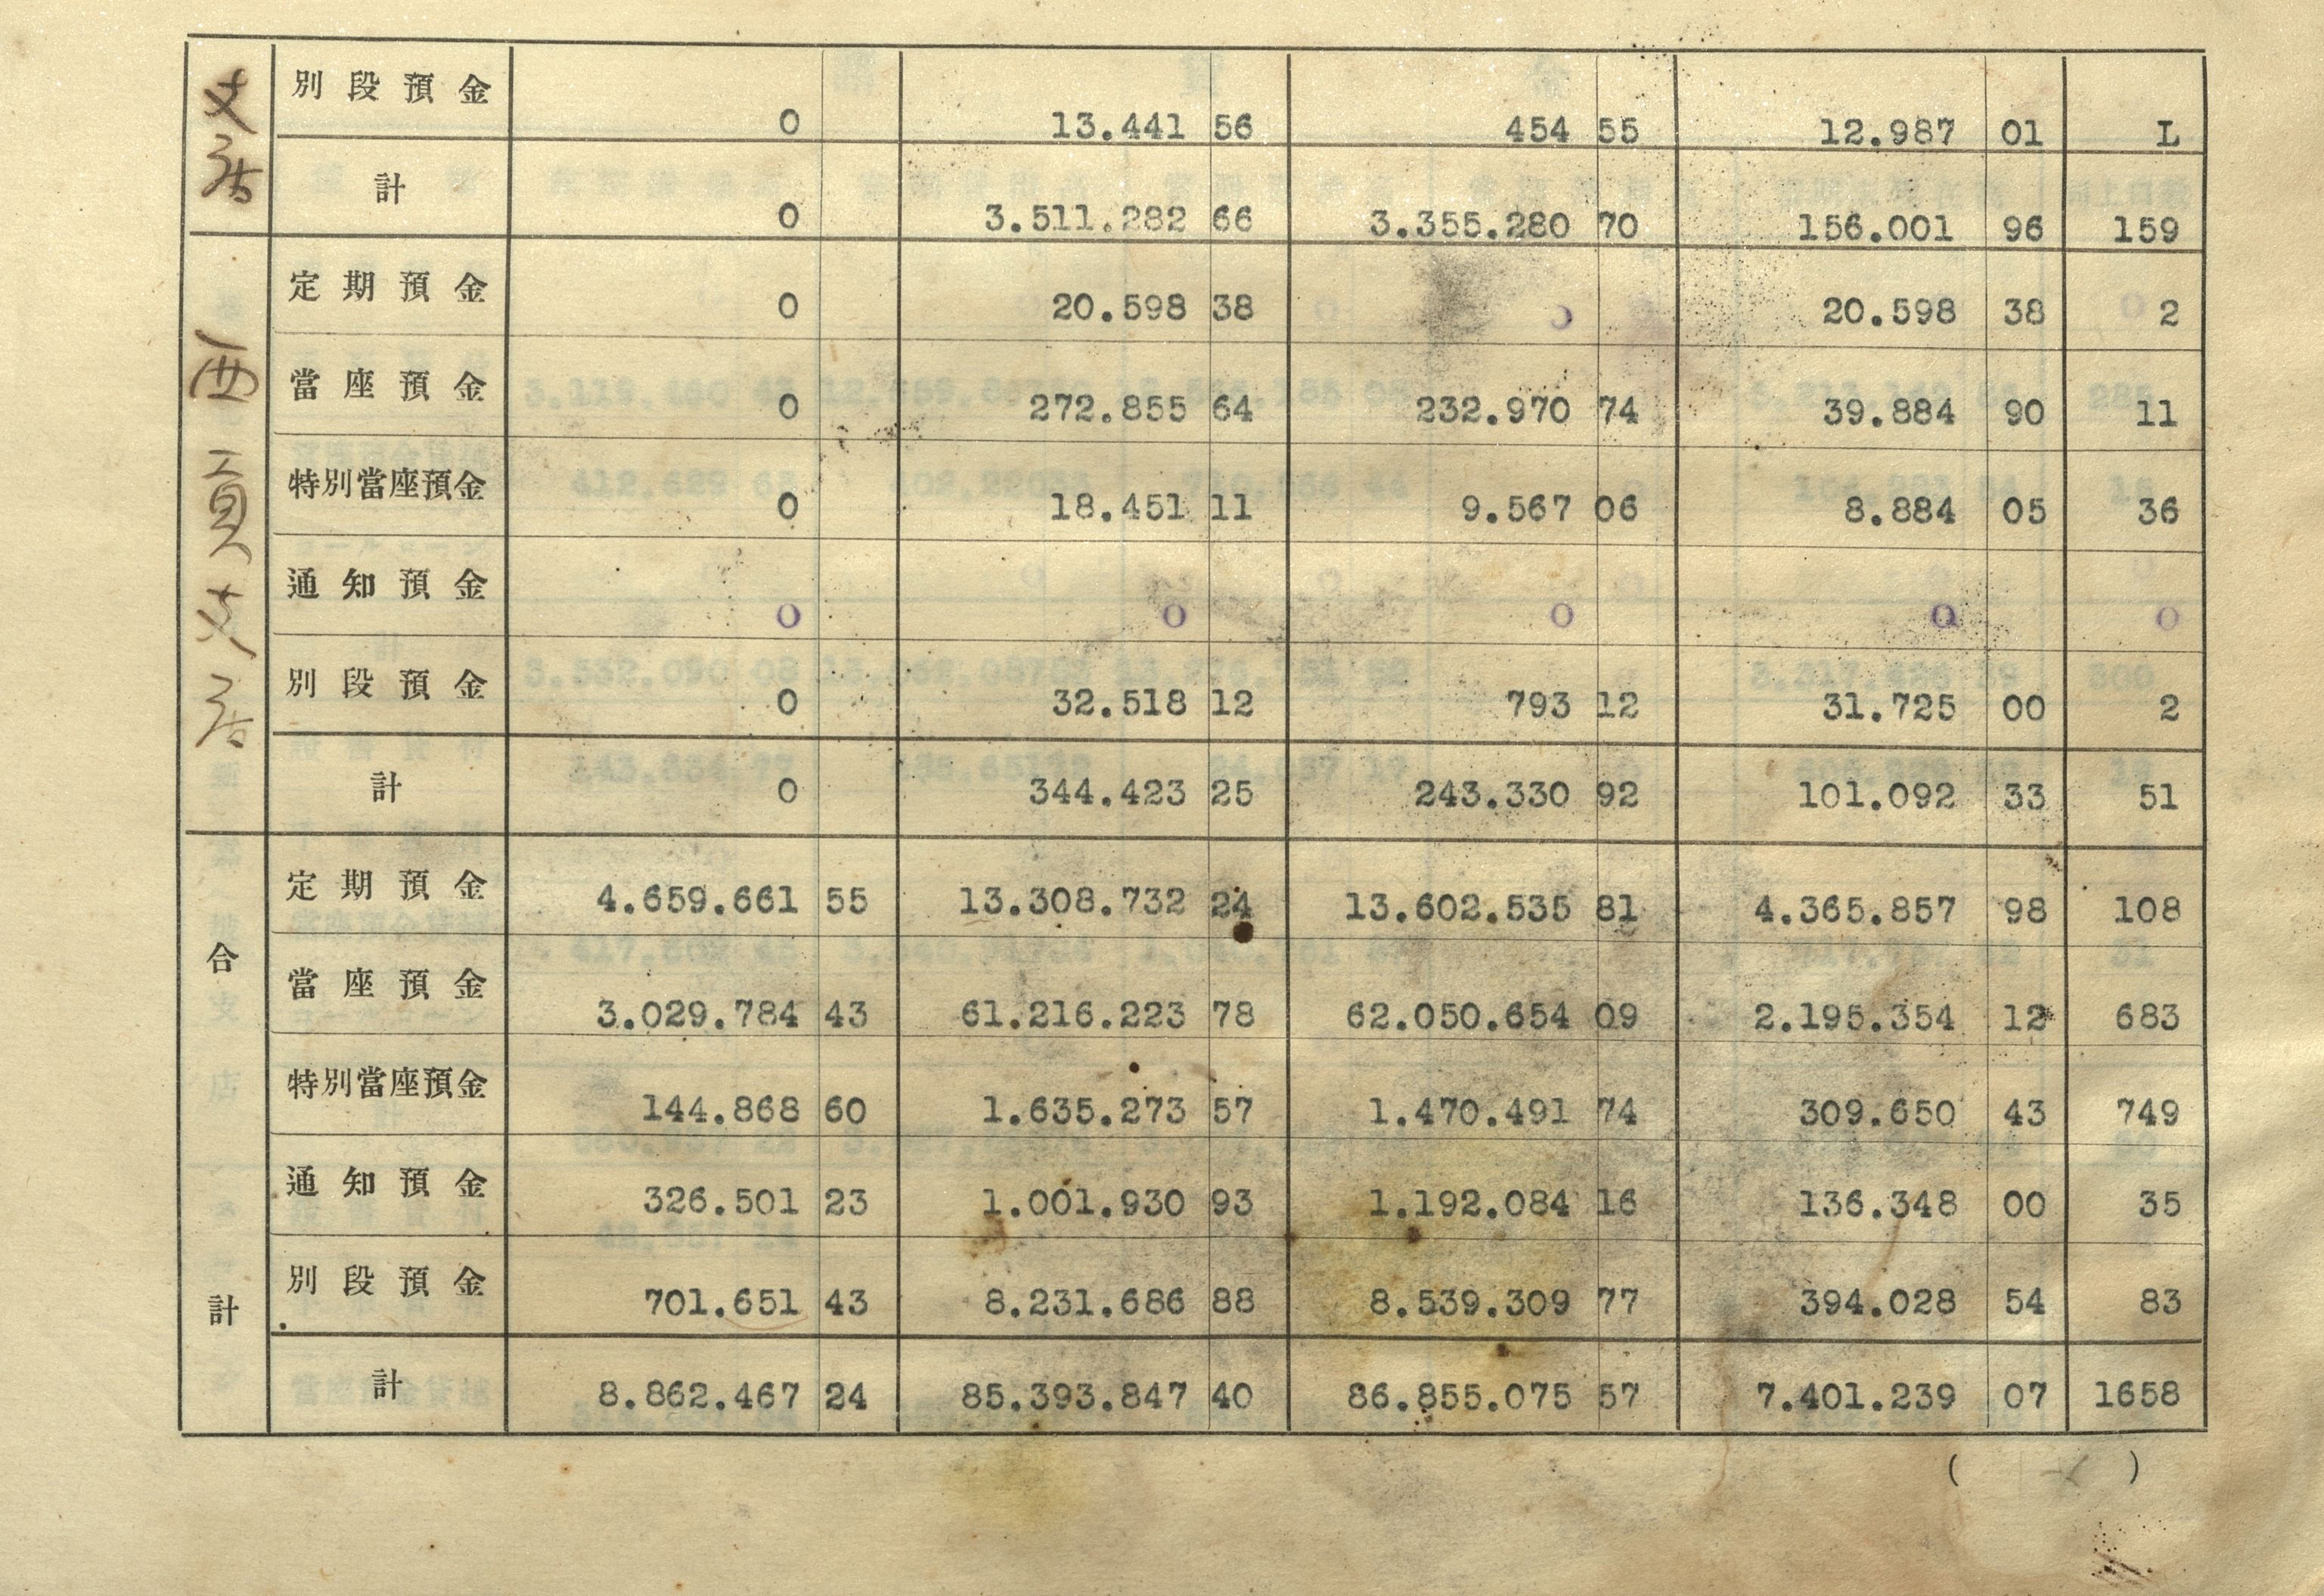 支店
別段預金 0 13.441 56 454 55 12.987 01 L
計 0 3.511.282 66 3.355.280 70 156.001 96 159
西貢支店
定期預金 0 20.598 38 0 20.598 38 2
當座預金 0 272.855 64 232.970 74 39.884 90 11
特別當座預金 0 18.451 11 9.567 06 8.884 05 36
通知預金 0 0 0 0 0
別段預金 0 32.518 12 793 12 31.725 00 2
計 0 344.423 25 243.330 92 101.092 33 51
合計
定期預金 4.659.661 55 13.308.732 24 13.602.535 81 4.365.857 98 108
當座預金 3.029.784 43 61.216.223 78 62.050.654 09 2.195.354 12 683
特別當座預金 144.868 60 1.635.273 57 1.470.491 74 309.650 43 749
通知預金 326.501 23 1.001.930 93 1.192.084 16 136.348 00 35
別段預金 701.651 43 8.231.686 88 8.539.309 77 394.028 54 83
計 8.862.467 24 85.393.847 40 86.855.075 57 7.401.239 07 1658
( )